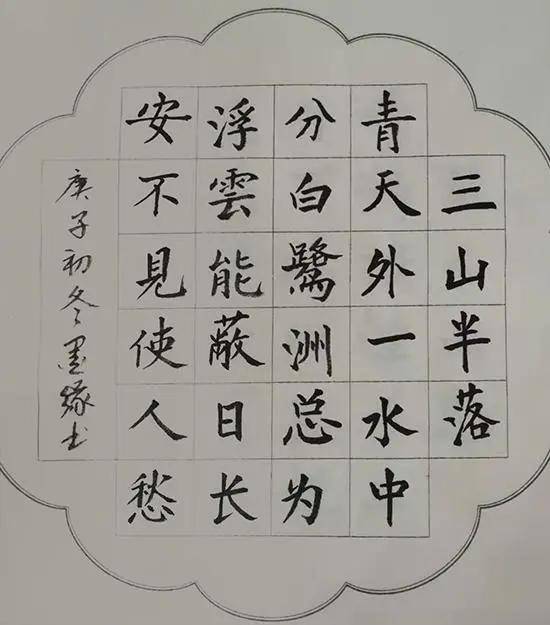 三山半落
青天外一水中
分白鷺洲总为
浮雲能蔽日长
安不見使人愁
庚子初冬墨缘书